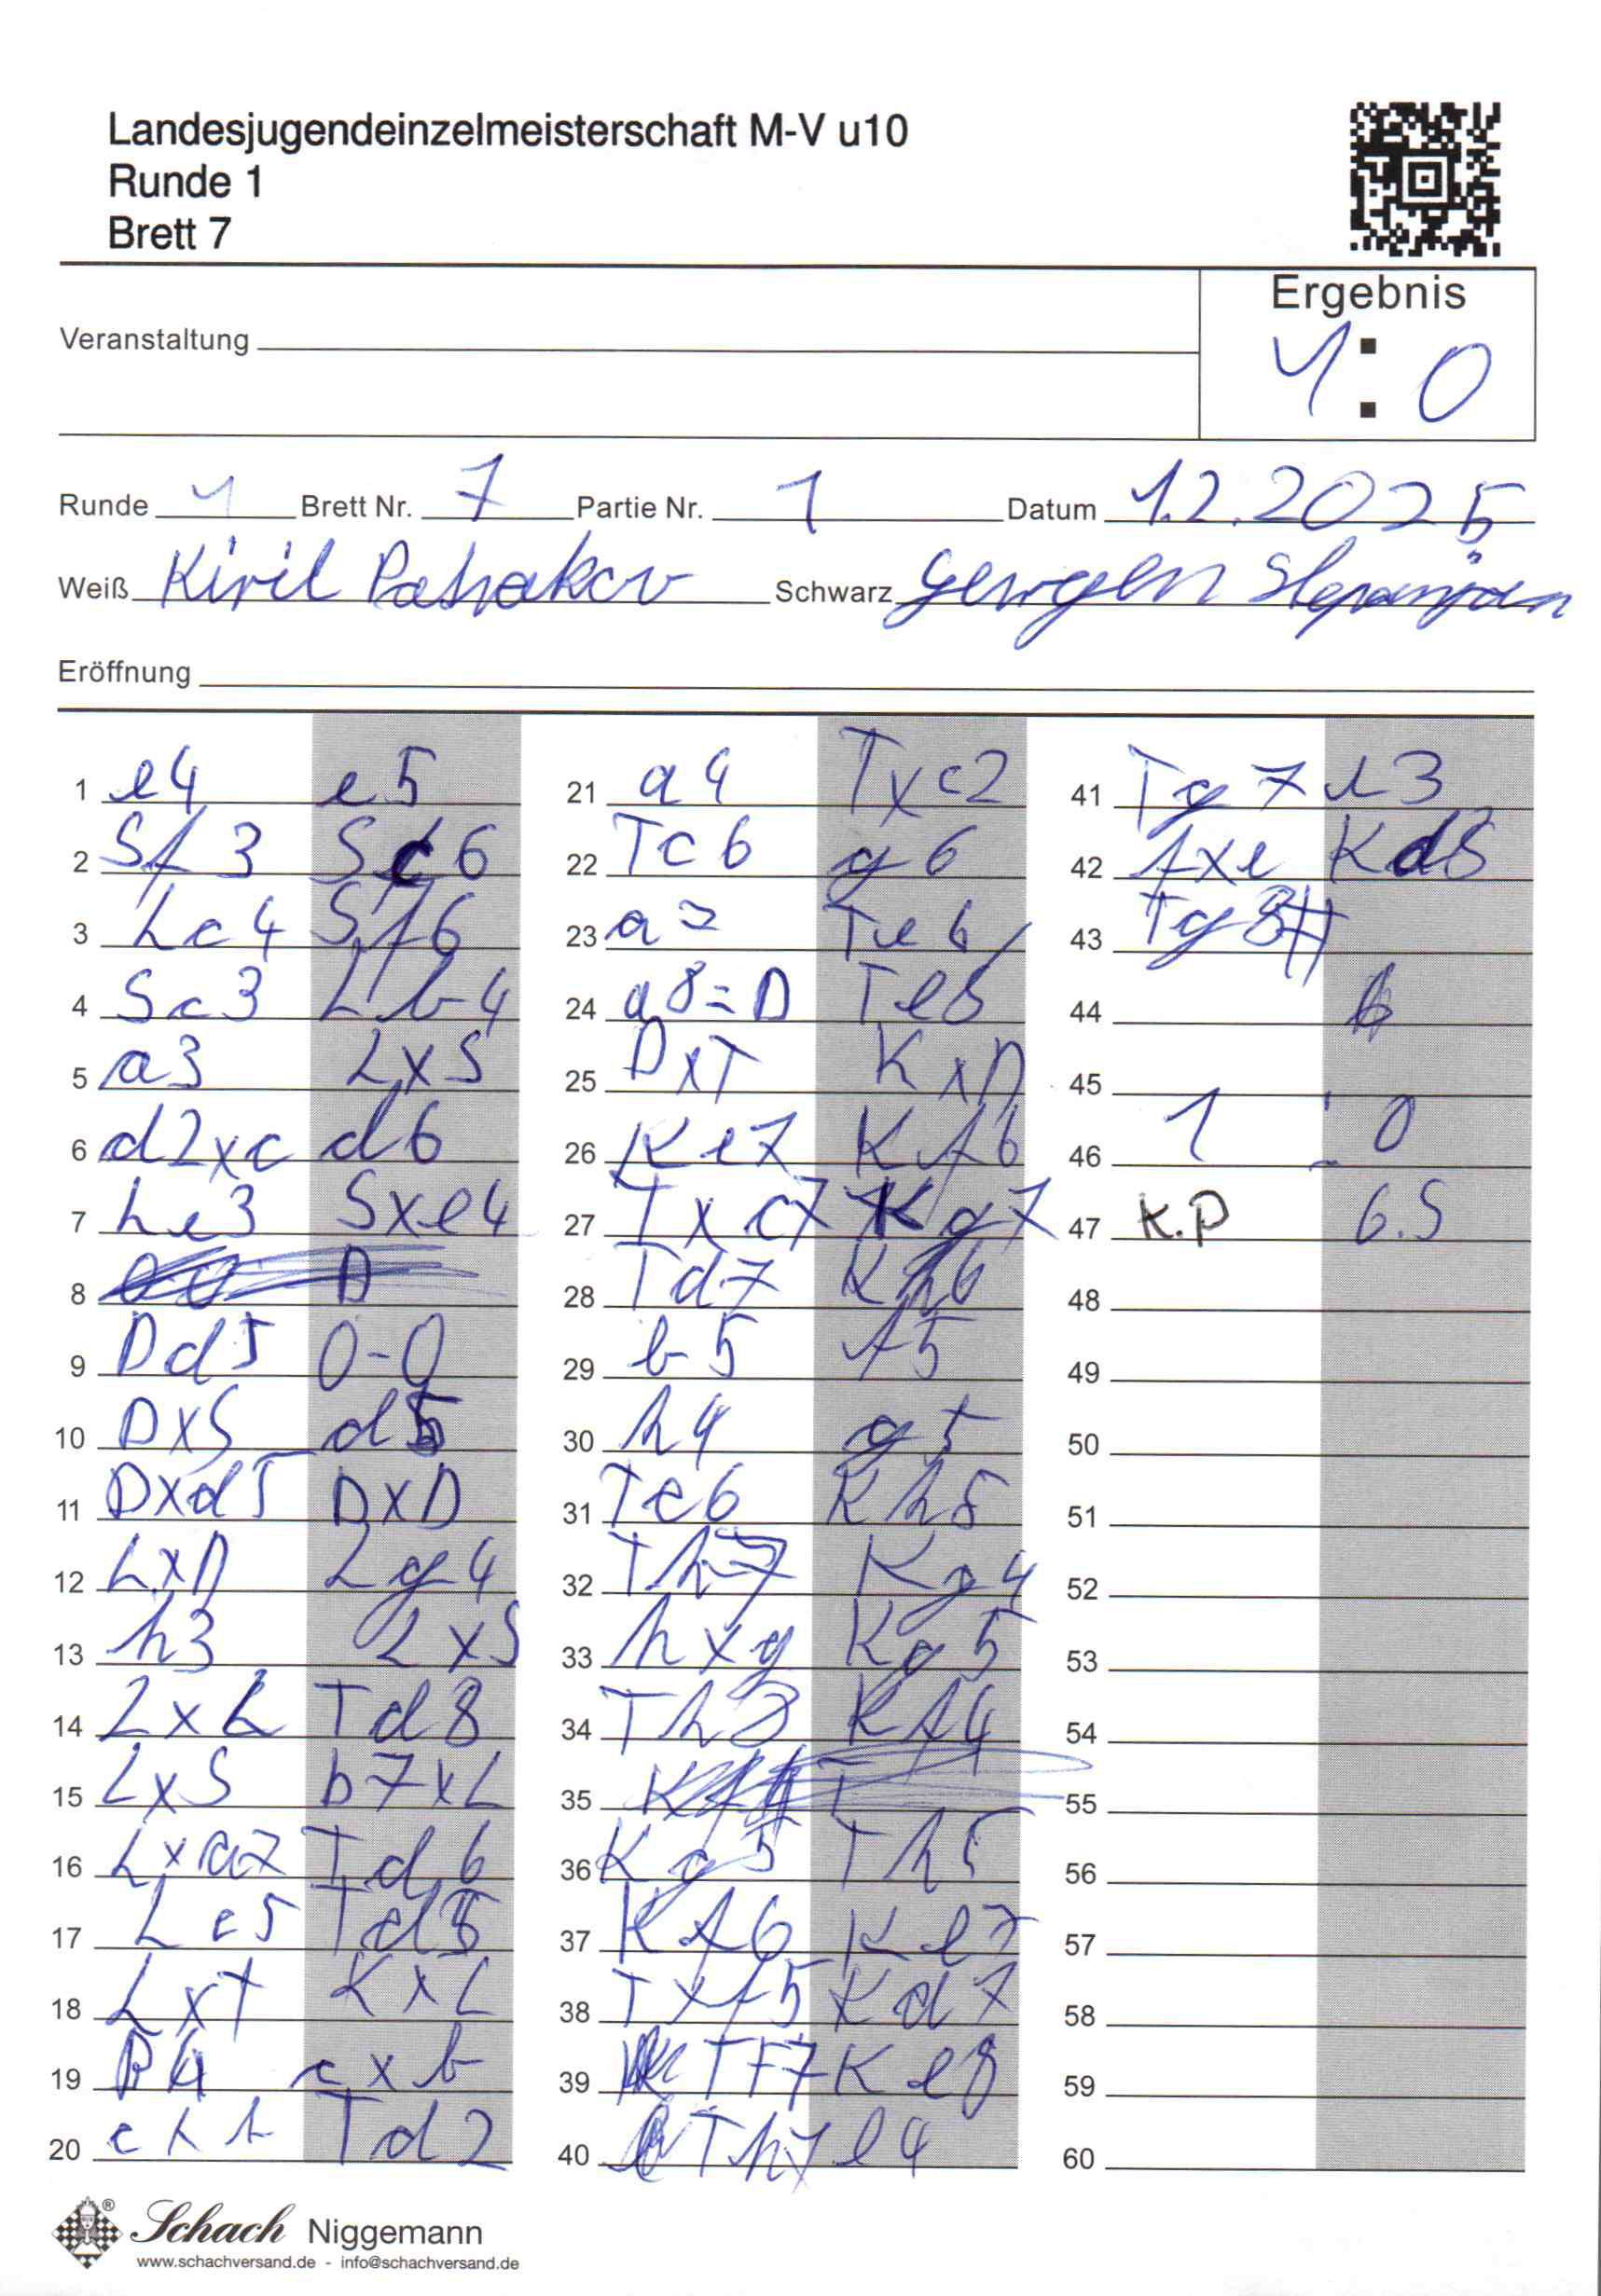 Landesjugendeinzelmeisterschaft M-V u10
Runde 1
Brett 7
Ergebnis
1 : 0
Veranstaltung
Runde 1 Brett Nr. 7 Partie Nr. 1 Datum 1.2.2025
Weiß Kiril Schwarz
Eröffnung
1 e4 e5
2 Sf3 Sc6
3 Lc4 Sf6
4 Sc3 Lb4
5 a3 LxS
6 d2xc d6
7 Le3 Sxe4
8
9 Dd5 0-0
10 DxS d5
11 Dxd5 DxD
12 LxD Lg4
13 h3 LxS
14 LxL Td8
15 LxS b7xL
16 Lxa7 Td6
17 Lc5 Td5
18 LxT KxL
19 B4 cxb
20 cxb Td2
21 a4 Txc2
22 Tc6 g6
23 a7 Te6
24 a8=D Te8
25 DxT KxD
26 Ke7 Kf6
27 Txc7 Kg7
28 Td7 Kh6
29 b5 f5
30 h4 g5
31 Te6 Kh5
32 Th7 Kg4
33 hxg Kg5
34 Th3 Kf4
35
36 Kg5 Th5
37 Kf6 Ke7
38 Txf5 Kd7
39 TF7 Ke8
40 Th7 e4
41 Tg7 e3
42 fxe Kd8
43 Tg8#
44
45
46 1 : 0
47 K.P G.S
48
49
50
51
52
53
54
55
56
57
58
59
60
® Schach Niggemann
www.schachversand.de - info@schachversand.de